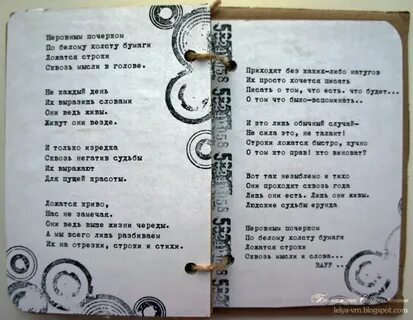 Неровным почерком
По белому холсту бумаги
Ложатся строки
Сквозь мысли в голове.
Не каждый день
Их выразишь словами
Они ведь живы.
Живут они везде.
И только изредка
Сквозь негатив судьбы
Их выражают
Для пущей красоты.
Ложатся криво,
Нас не замечая.
Они ведь выше жизни череды.
А мы всего лишь разбиваем
Их на отрезки, строки и стихи.
Приходят без каких-либо натугов
Их просто хочется писать
Писать о том, что есть. что будет...
О том что было-вспоминать..
И это лишь обычный случай-
Не сила это, не талант!
Строки ложатся быстро, кучно
О том кто прав! кто виноват?
Вот так незыблемо и тихо
Они проходят сквозь года
Лишь они есть. Лишь они живы.
Людские судьбы ерунда
Неровным почерком
По белому холсту бумаги
Ложатся строки
Сквозь мысли и слова...
RAFF ..
lelya-vm.blogspot.com